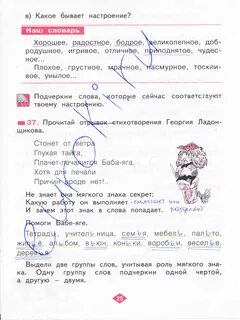 в) Какое бывает настроение?
Наш словарь
Хорошее, радостное, бодрое, великолепное, доб-
родушное, игривое, отличное, приподнятое, чудес-
ное...
Плохое, грустное, мрачное, пасмурное, тоскли-
вое, унылое...
Подчеркни слова, которые сейчас соответствуют
твоему настроению.
37. Прочитай отрывок стихотворения Георгия Ладон-
щикова.
Стонет от ветра
Глухая тайга,
Плачет-печалится Баба-яга,
Хотя для печали
Причин вроде нет!..
Не знает она мягкого знака секрет:
Какую работу он выполняет смягчает или
И зачем этот знак в слова попадает. разделяет
Помоги Бабе-яге.
Тетрадь, учительница, семья, мебель, пальто,
жильё, альбом, вьюн, коньки, воробьи, веселье,
деревья.
Выдели две группы слов, учитывая роль мягкого зна-
ка. Одну группу слов подчеркни одной чертой,
а другую – двумя.
25